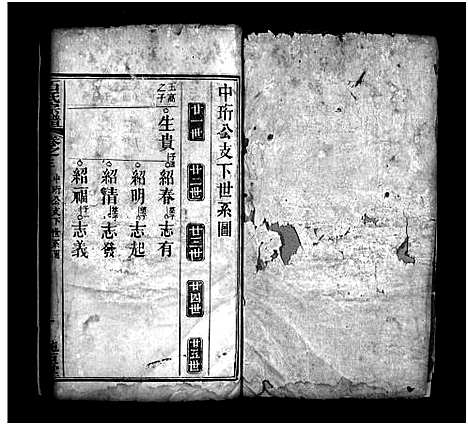 中珩公支下世系圖
廿一世
廿二世
廿三世
廿四世
廿五世
玉高之子
生貴
紹春
志有
紹明
志起
紹情
志發
紹福
志義
中珩公支下世系圖